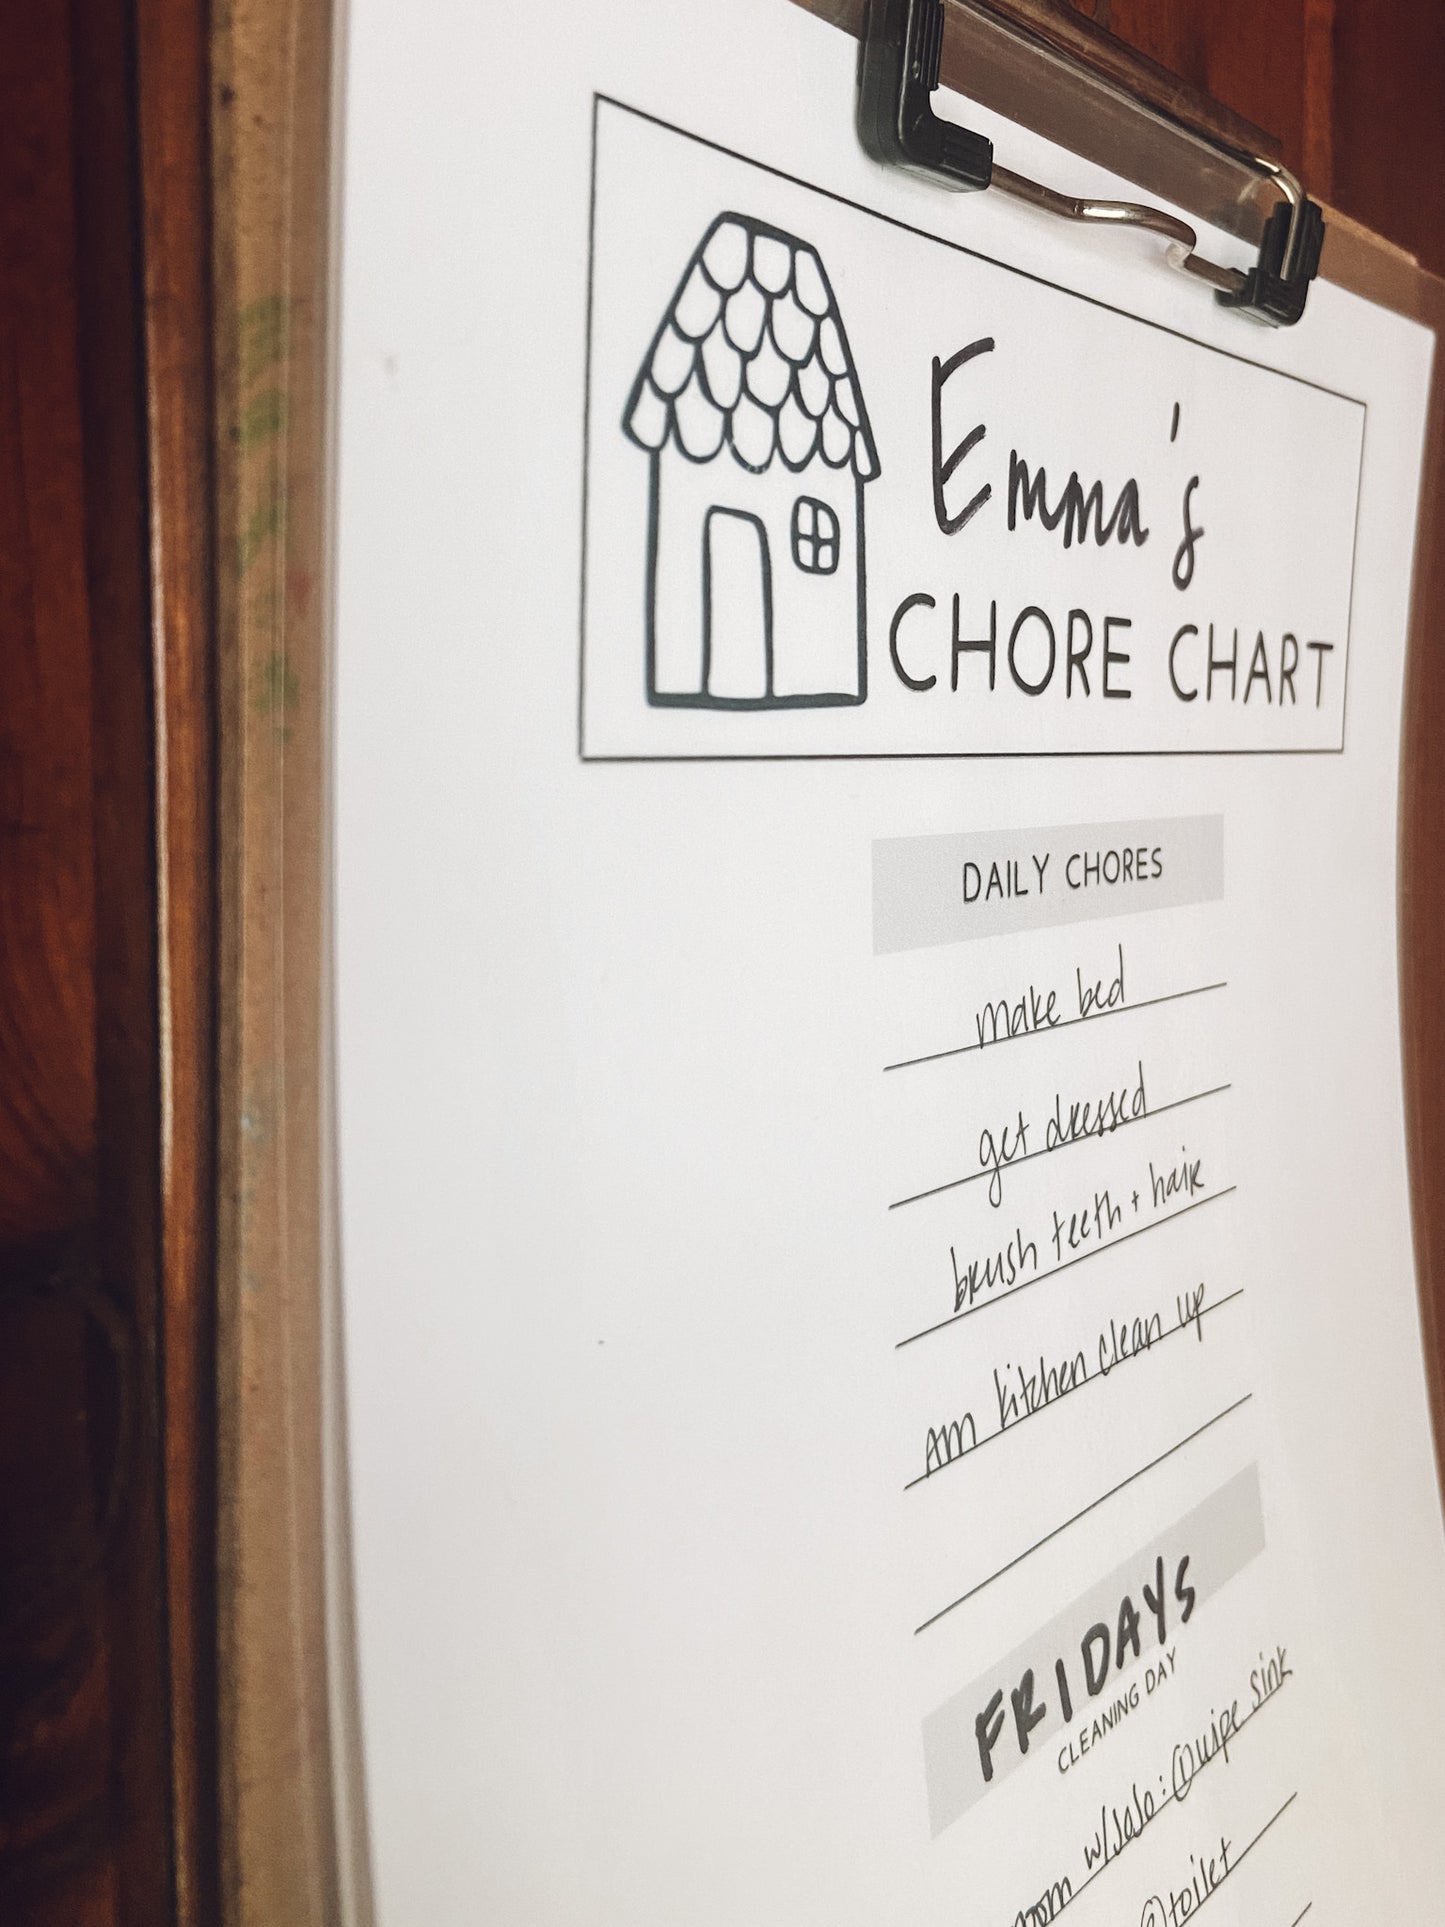 Emma's
CHORE CHART
DAILY CHORES
make bed
get dressed
brush teeth + hair
AM kitchen clean up
FRIDAYS
CLEANING DAY
w/JoJo: ① wipe sink
② toilet